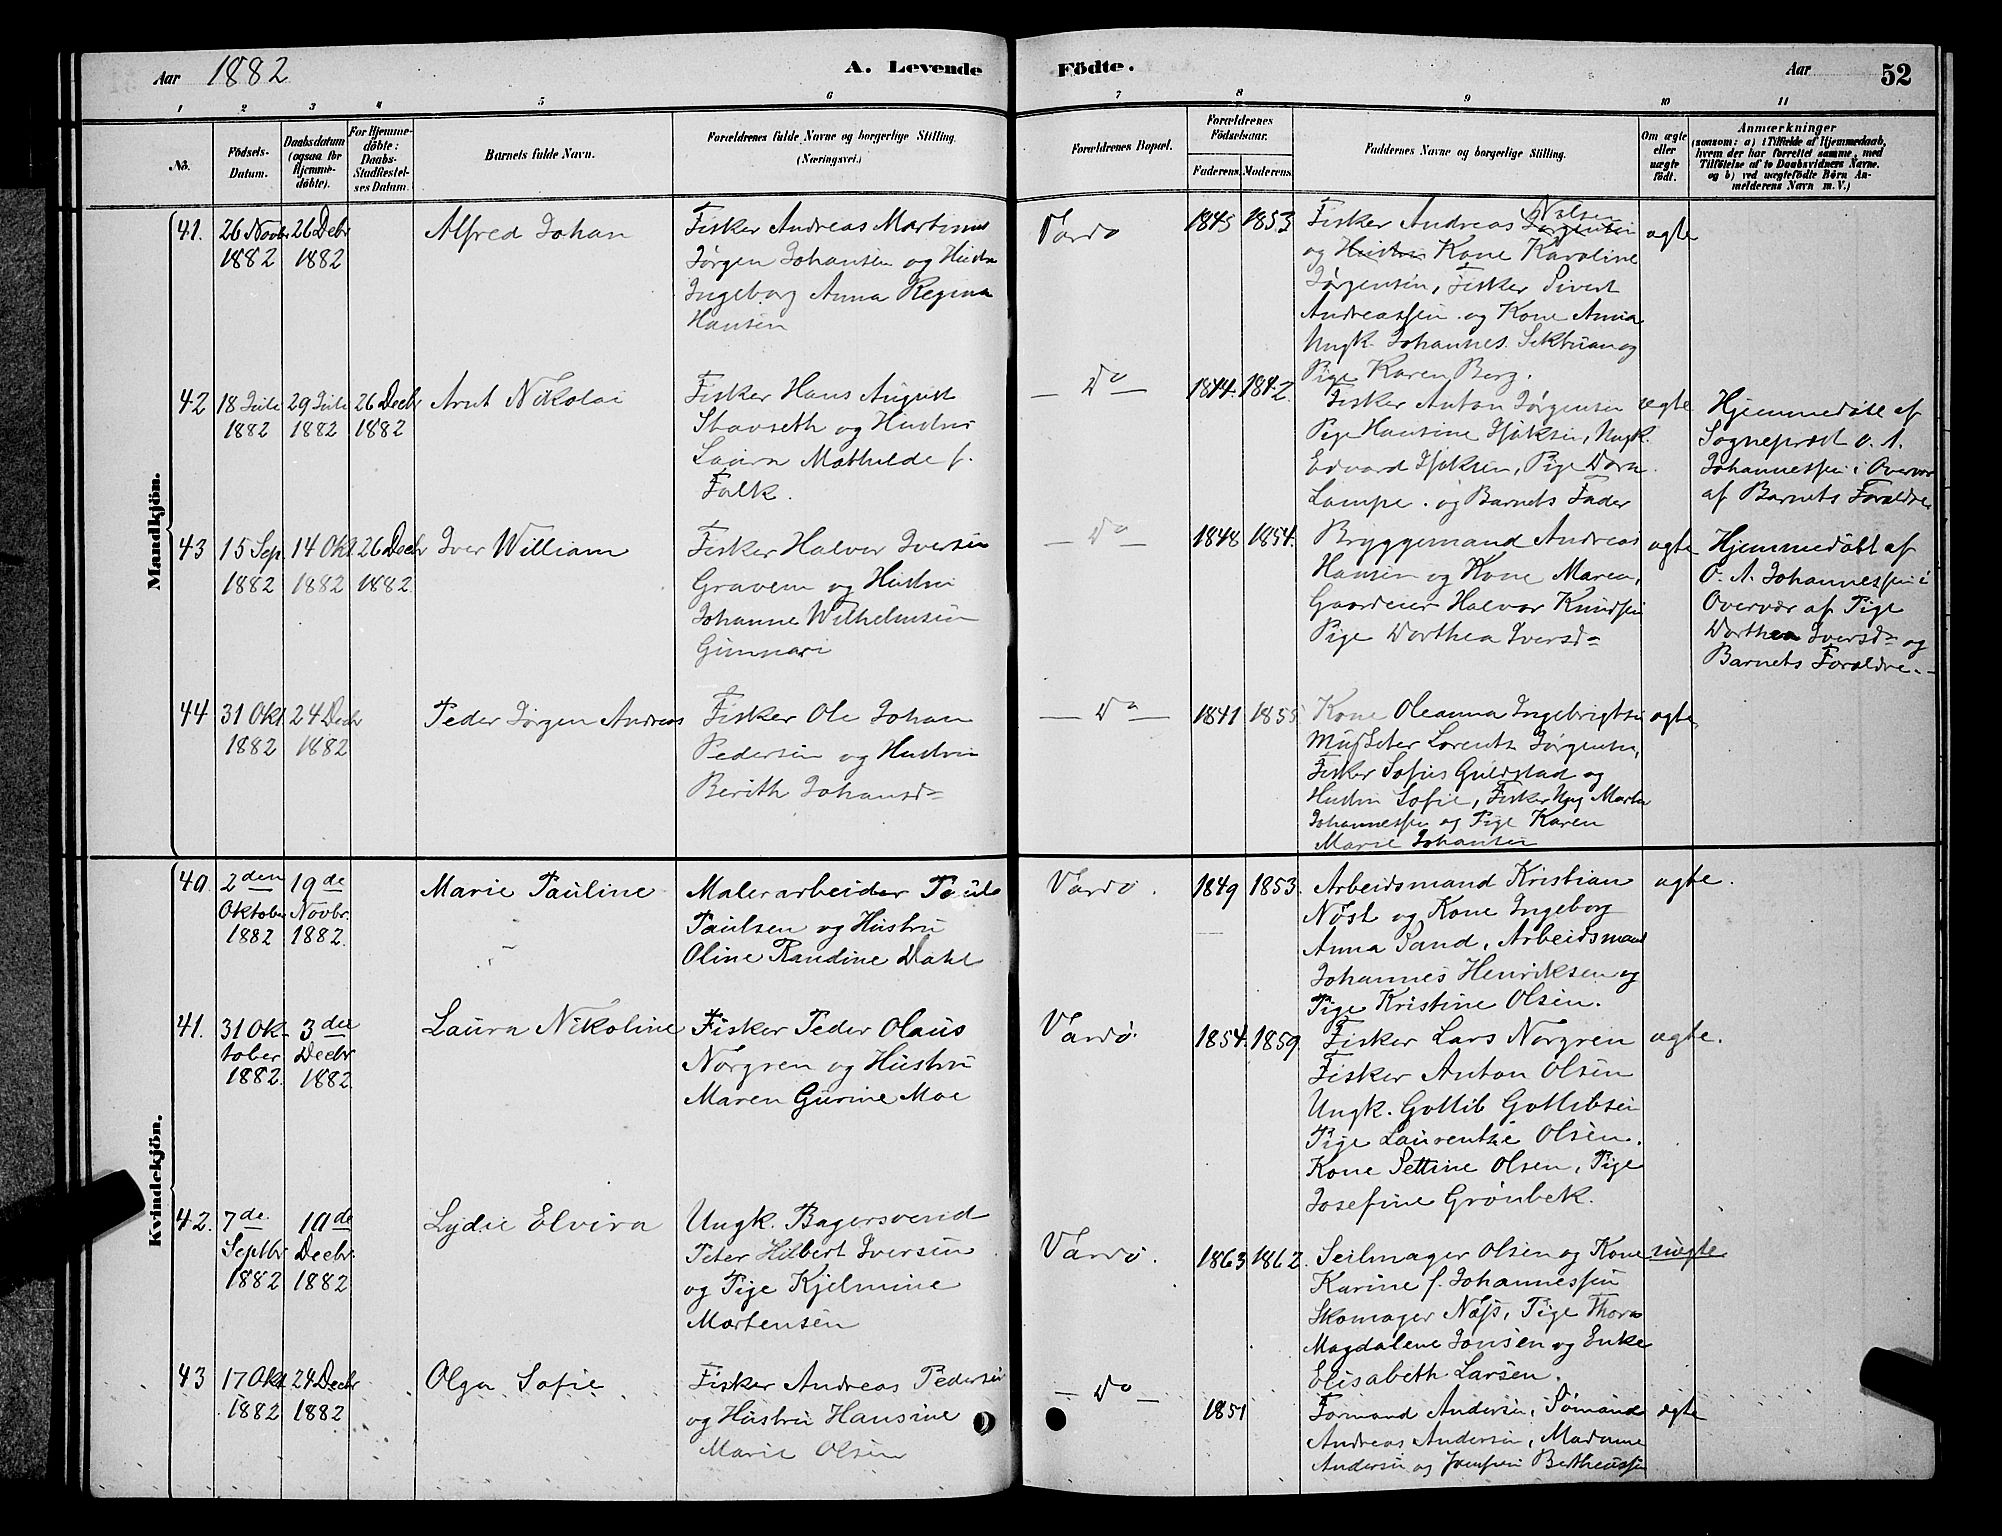 Aar 1882
A. Levende
Födte.
Aar
52
1
2
3
4
5
6
7
8
9
10
11
No.
Födsels-
Datum.
Daabsdatum
(ogsaa for
Hjemme-
döbte).
For Hjemme-
döbte:
Daabs-
Stadfæstel-
ses Datum.
Barnets fulde Navn.
Forældrenes fulde Navne og borgerlige Stilling.
(Næringsvei.)
Forældrenes Bopæl.
Forældrenes
Födselsaar.
Faderens.
Moderens.
Faddernes Navne og borgerlige Stilling.
Om ægte
eller
uægte
födt.
Anmærkninger
(saasom: a) i Tilfælde af Hjemmedaab,
hvem der har forrettet samme, med
Tilföielse af to Daabsvidners Navne.
og b) ved uægtefödte Börn An-
melderens Navn m. V.)
Mandkjön.
41.
26 Novbr
1882
26 Debr
1882
Alfred Johan
Fisker Andreas Martinus
Jørgen Johansen og Hustru
Ingeborg Anna Regina
Hansen
Vardø
1845
1853
Fisker Andreas Jørgensen Nilsen
og Hustru Kone Karoline
Jørgensen, Fisker Sivert
Andreassen og Kone Anna
Ungk. Johannes og
Pige Karen Berg.
ægte
42
18 Juli
1882
29 Juli
1882
26 Decbr
1882
Arnt Nikolai
Fisker Hans August
Stavseth og Hustru
Laura Mathilde f.
Falk.
— Do —
1844.
1842.
Fisker Anton Jørgensen
Pige Hansine Isaksen, Ungk.
Edvard Isaksen, Pige Dorn
Lampe. og Barnets Fader
ægte
Hjemmedöbt af
Sogneprest O. A.
Johannessen i Overvær
af Barnets Forældre
43
15 Sep.
1882
14 Okt.
1882
26 Decbr
1882
Iver William
Fisker Halvor Iversen
Gravem og Hustru
Johanne Wilhelmsen
Gunnari
— Do —
1848
1854.
Bryggemand Andreas
Hansen og Kone Maren,
Gaardeier Halvor Knudsen
Pige Dorthea Iversd=
ægte
Hjemmedöbt af
O. A. Johannessen i
Overvær af Pige
Dorthea Iversd= og
Barnets Forældre.
44
31 Okt
1882
24 Decbr
1882
Peder Jørgen Andreas
Fisker Ole Johan
Pedersen og Hustru
Berith Johansd=
— Do —
1841
1855
Kone Oleanna Ingebrigtsen
Lorentz Jørgensen,
Fisker Sofus Guldstad og
Hustru Sofie, Fisker Ung Martin
Johannessen og Pige Karen
Marie Johansen
ægte
Kvindekjön.
40.
2den
Oktober
1882
19de
Novbr.
1882.
Marie Pauline
Malerarbeider Paul
Paulsen og Hustru
Oline Randine Dahl
Vardø.
1849
1853.
Arbeidsmand Kristian
Nøst og Kone Ingeborg
Anna Sand, Arbeidsmand
Johannes Henriksen og
Pige Kristine Olsen.
ægte.
41.
31 Ok-
tober
1882.
3die
Decbr
1882.
Laura Nikoline
Fisker Peder Olaus
Norgren og Hustru
Maren Gurine Moe
Vardø.
1854.
1859.
Fisker Lars Norgren
Fisker Anton Olsen
Ungk. Gottlib Gottlibsen
Pige Laurentze Olsen.
Kone Settine Olsen, Pige
Josefine Grønbek.
ægte.
42.
7de
Septbr
1882
10de
Decbr.
1882
Lydie Elvira
Ungk. Bagersvend
Peter Hilbert Iversen
og Pige Kjelmine
Mortensen
Vardø.
1863
1862.
Seilmager Olsen og Kone
Karine f. Johannessen
Skomager Næss, Pige Thora
Magdalene Jonsen og Enke
Elisabeth Larsen.
uægte
43
17 Okt
1882
24 Decbr
1882
Olga Sofie
Fisker Andreas Pedersen
og Hustru Hansine
Marie Olsen
— Do —
1851
Formand Andersen, Sømand
Andreas Andersen, Madame
Andersen og Bertheussen
ægte